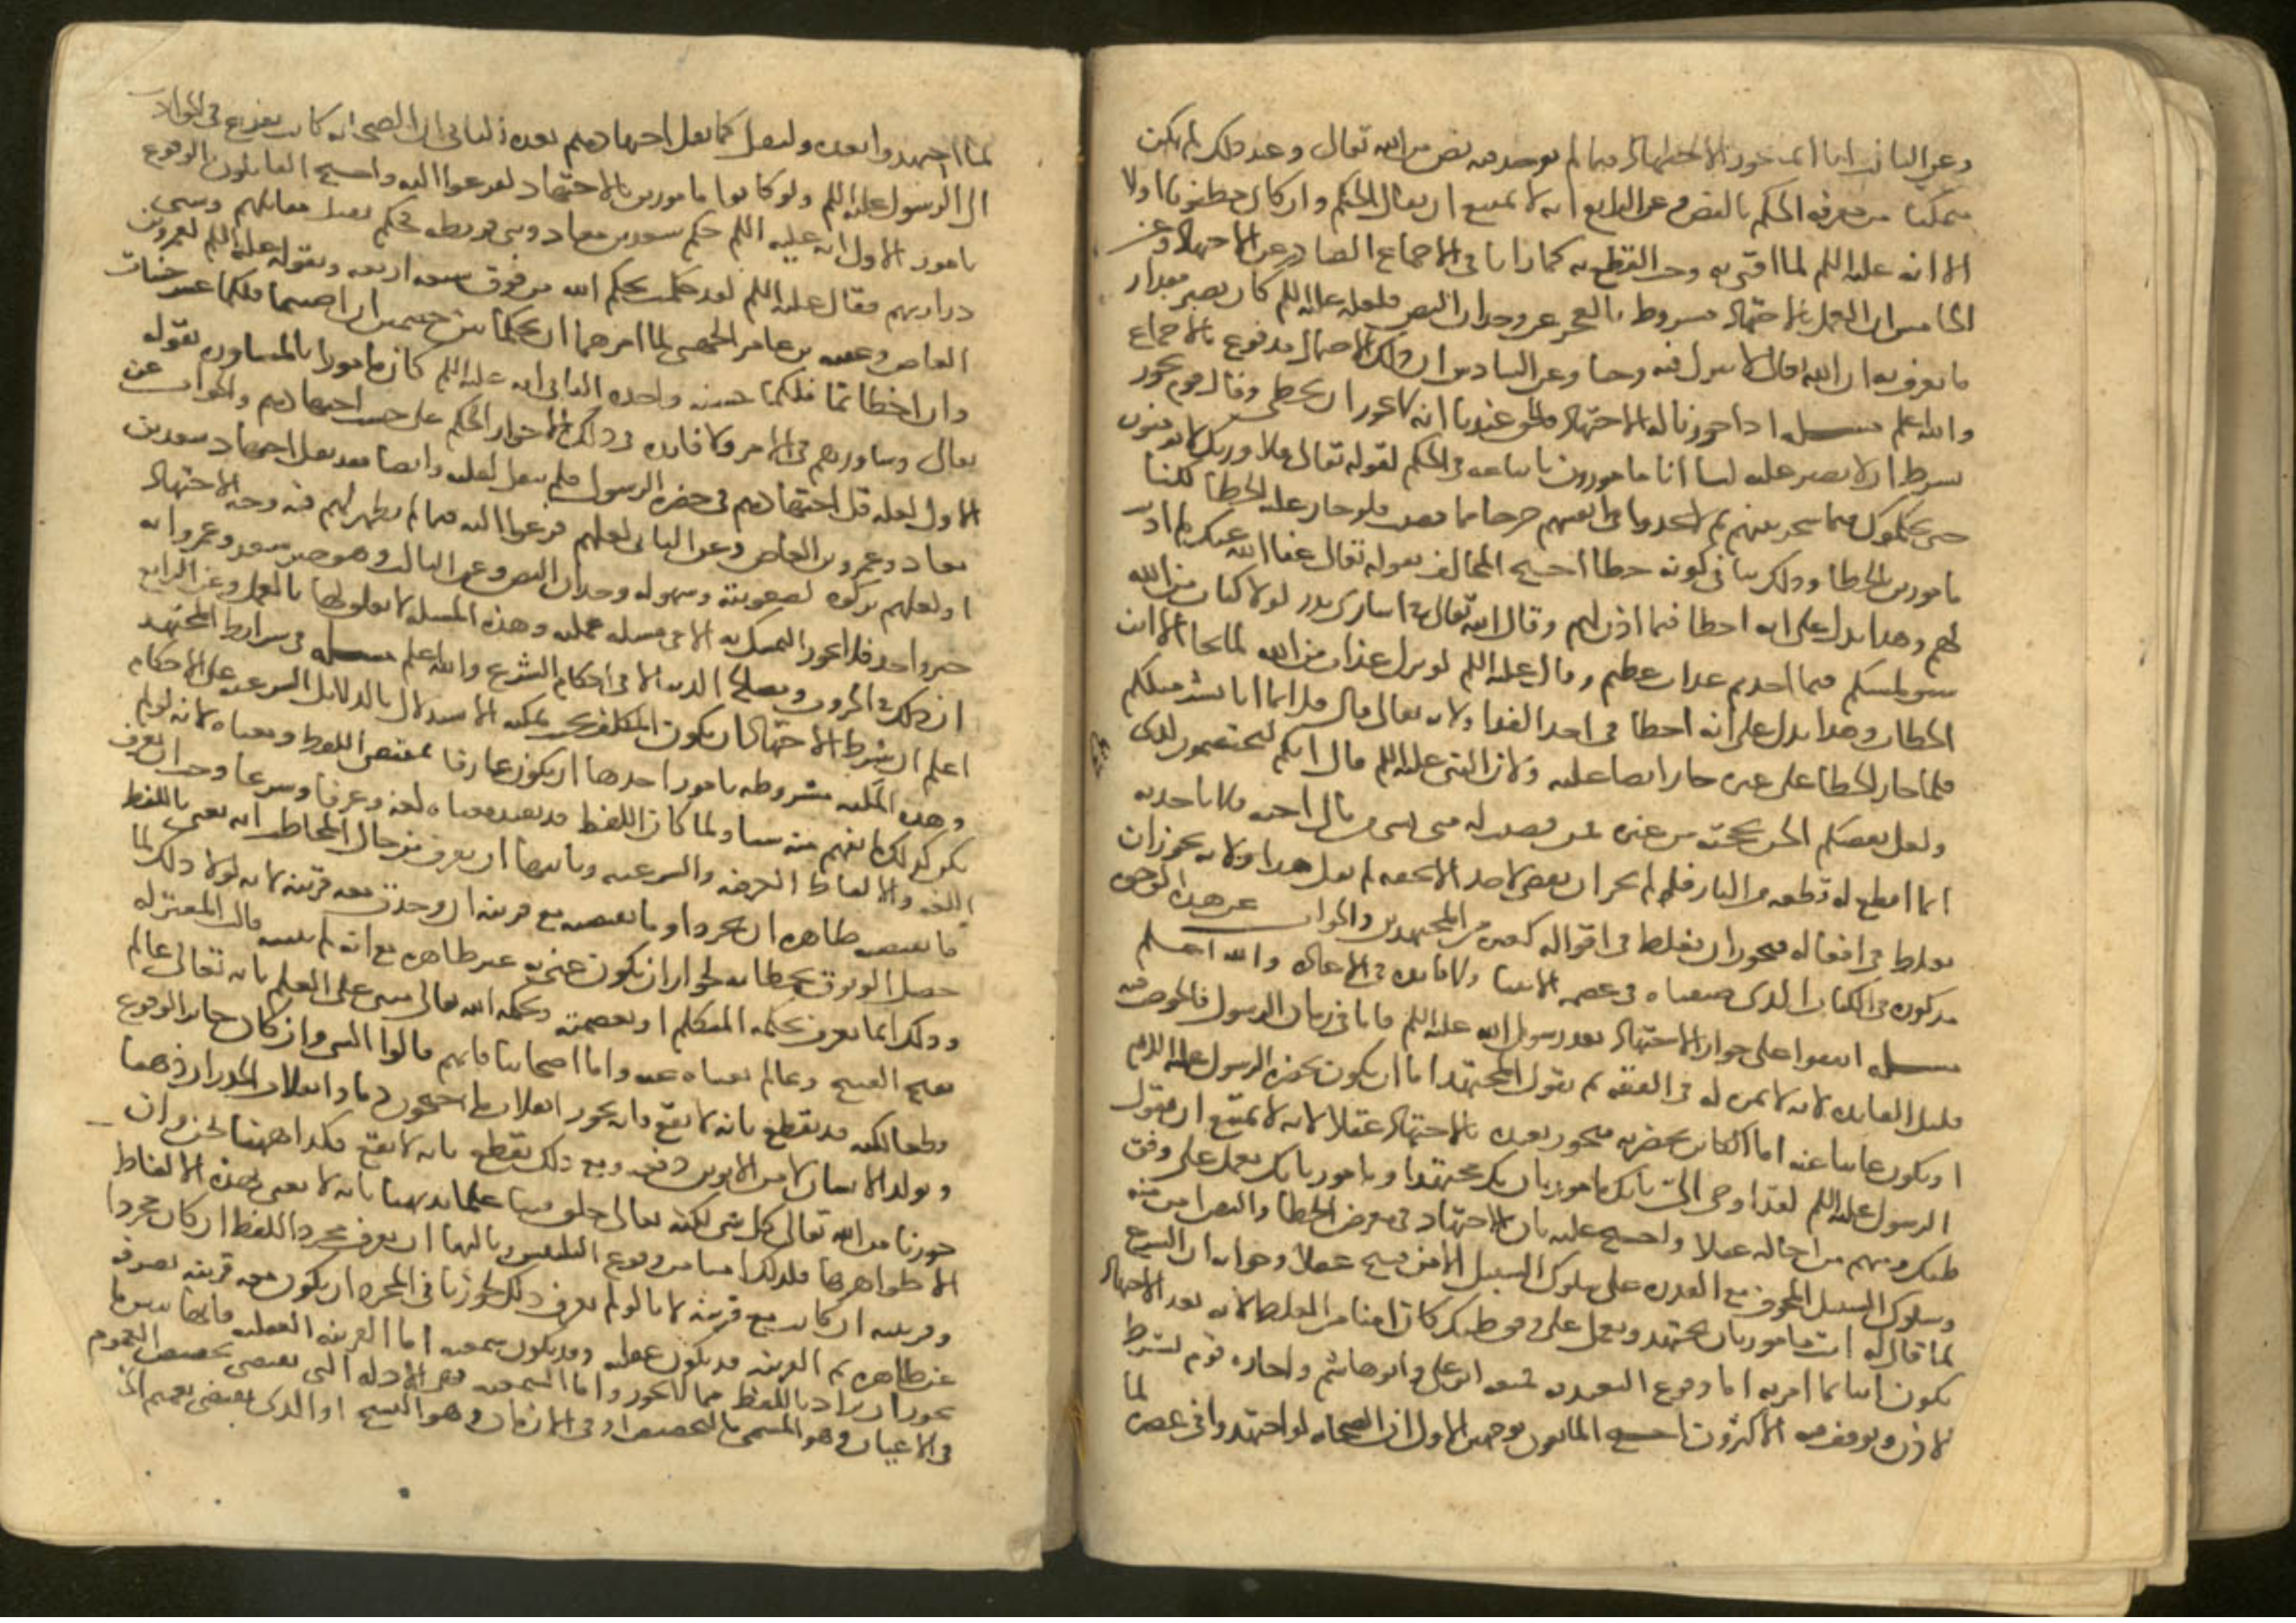 وعن الثاني انا انما نجوز الاجتهاد فيما لم يوجد فيه نص من الله تعالى وعند ذلك لم يكن
متمكنا من معرفة الحكم بالنص وعن الرابع انه لا يمتنع ان يقال الحكم وان كان مظنونا اولا
الا انه عليه السلم لما افتى به وجب القطع به كما رانا في الاجماع الصادر عن الاجتهاد وعن
الخامس ان العمل بالاجتهاد مشروط بالعجز عن وجدان النص فلعله عليه السلم كان يصبر مقدار
ما يعرف به ان الله تعالى لا ينزل فيه وحيا وعن السادس ان ذلك الاحتمال مدفوع بالاجماع
والله اعلم مسله اذا جوزنا له الاجتهاد فالحق عندنا انه لا يجوز ان يخطى وقال قوم يجوز
بشرط ان لا يقر عليه لنا انا مامورون باتباعه في الحكم لقوله تعالى فلا وربك لا يومنون
حتى يحكموك فيما شجر بينهم ثم لا يجدوا في انفسهم حرجا مما قضيت فلو جاز عليه الخطا لكنا
مامورين بالخطا وذلك ينافي كونه خطا احتج المخالف بقوله تعالى عفا الله عنك لم اذنت
لهم وهذا يدل على انه اخطا فيما اذن لهم وقال الله تعالى في اسارى بدر لولا كتاب من الله
سبق لمسكم فيما اخذتم عذاب عظيم وقال عليه السلم لو نزل عذاب من الله لما نجا الا ابن
الخطاب وهذا يدل على انه اخطا في اخذ الفدا ولانه تعالى قال قل انما انا بشر مثلكم
فلما جاز الخطا على غيره جاز ايضا عليه ولان النبي عليه السلم قال انكم لتختصمون لدى
ولعل بعضكم الحن بحجته من غيره فمن قضيت له بشى من مال اخيه فلا ياخذنه
انما اقطع له قطعة من النار فلو لم يجز ان يقضى لاحد الا بحقه لم يقل هذا ولانه يجوز ان
يغلط في افعاله فيجوز ان يغلط في اقواله كغيره من المجتهدين والجواب عن هذه الوجوه
مذكورة في الكتاب الذى صنفناه في عصمة الانبيا ولا فايدة في الاعادة والله اعلم
مسله اتفقوا على جواز الاجتهاد بعد رسول الله عليه السلم فاما في زمان الرسول فالخوض فيه
قليل الفايدة لانه لا ثمرة له في الفقه ثم نقول المجتهد اما ان يكون بحضرة الرسول عليه السلم
او يكون غايبا عنه اما الكاين بحضرته فيجوز تعبده بالاجتهاد عقلا لانه لا يمتنع ان يقول
الرسول عليه السلم لقد اوحى الي بانك مامور بان تجتهد او مامور بانك تعمل على وفق
ظنك ومنهم من احاله عقلا واحتج عليه بان الاجتهاد في معرض الخطا والنص امن منه
وسلوك السبيل المخوف مع القدرة على سلوك السبيل الامن قبيح عقلا وجوابه ان الشرع
لما قال له انت مامور بان تجتهد وتعمل على وفق ظنك كان امنا من الغلط لانه بعد الاجتهاد
يكون اتيا بما امر به اما وقوع التعبد به فمنعه ابو علي وابو هاشم واجازه قوم بشرط
الاذن وتوقف فيه الاكثرون احتج المانعون بوجهين الاول ان الصحابه لو اجتهدوا في عصره لما
لما اجتهدوا بعده ولنقل كما نقل اجتهادهم بعده الثاني ان الصحابه كانت تفزع في الحوادث
الى الرسول عليه السلم ولو كانوا مامورين بالاجتهاد لم يفزعوا اليه واحتج القايلون بالوقوع
بامور الاول انه عليه السلم حكم سعد بن معاذ في بني قريظه فحكم بقتل مقاتلهم وسبى
ذراريهم فقال عليه السلم لقد حكمت بحكم الله من فوق سبعة ارقعه وبقوله عليه السلم لعمرو بن
العاص وعقبه بن عامر الجهني لما امرهما ان يحكما بين خصمين ان اصبتما فلكما عشر حسنات
وان اخطاتما فلكما حسنة واحدة الثاني انه عليه السلم كان مامورا بالمشاوره بقوله
تعالى وشاورهم في الامر ولا فايده في ذلك الا جواز الحكم على حسب اجتهادهم والجواب عن
الاول لعله قل اجتهادهم في حضرة الرسول فلم ينقل لقلته وايضا فقد نقل اجتهاد سعد بن
معاذ وعمرو بن العاص وعن الثاني لعلهم فزعوا اليه فيما لم يظهر لهم فيه وجه الاجتهاد
او لعلهم تركوه لصعوبته وسهولة وجدان النص وعن الثالث وهو خبر سعد وعمرو انه
خبر واحد فلا يجوز التمسك به الا في مسله عمليه وهذه المسله لا تعلق لها بالعمل وعن الرابع
ان ذلك في الحروب ومصالح الدنيا لا في احكام الشرع والله اعلم مسله في شرايط المجتهد
اعلم ان شرط الاجتهاد ان يكون المكلف بحيث يمكنه الاستدلال بالدلايل الشرعيه على الاحكام
وهذه المكنه مشروطه بامور احدها ان يكون عارفا بمقتضى اللفظ ومعناه لانه لو لم
يكن كذلك لم يفهم منه شيا ولما كان اللفظ قد يفيد معناه لغة وعرفا وشرعا وجب ان يعرف
اللغه والالفاظ العرفيه والشرعيه وثانيها ان يعرف من حال المخاطب انه يعني باللفظ
ما يقتضيه ظاهره ان تجرد او ما يقتضيه مع قرينه ان وجدت معه قرينه لانه لولا ذلك لما
حصل الوثوق بخطابه لجواز ان يكون عنى به غير ظاهره مع انه لم يبينه قالت المعتزله
وذلك انما يعرف بحكمة المتكلم او بعصمته وحكمه الله تعالى مبنى على العلم بانه تعالى عالم
بقبح القبيح وعالم بغناه عنه واما اصحابنا فانهم قالوا الشى وان كان جايز الوقوع
قطعا لكنه قد نقطع بانه لا يقع فانه يجوز انقلاب ما جيحون دما وانقلاب الجدران ذهبا
وتولد الانسان لا من الابوين دفعه ومع ذلك نقطع بانه لا يقع فكذا ههنا نحن وان
جوزنا من الله تعالى كل شى لكنه تعالى خلق فينا علما بديهيا بانه لا يعنى بهذه الالفاظ
الا ظواهرها فلذلك امنا من وقوع التلبيس وثالثها ان يعرف مجرد اللفظ ان كان مجردا
وقرينته ان كانت مع قرينه لانا لو لم نعرف ذلك لجوزنا في المجرد ان يكون معه قرينه تصرفه
عن ظاهره ثم القرينه قد تكون عقليه وقد تكون سمعيه اما القرينه العقليه فانها تبين ما
يجوز ان يراد باللفظ مما لا يجوز واما السمعيه فهي الادله التي تقتضى تخصيص العموم
في الاعيان وهو المسمى بالتخصيص او في الازمان وهو النسخ او الذى يقتضى تعميم الخاص